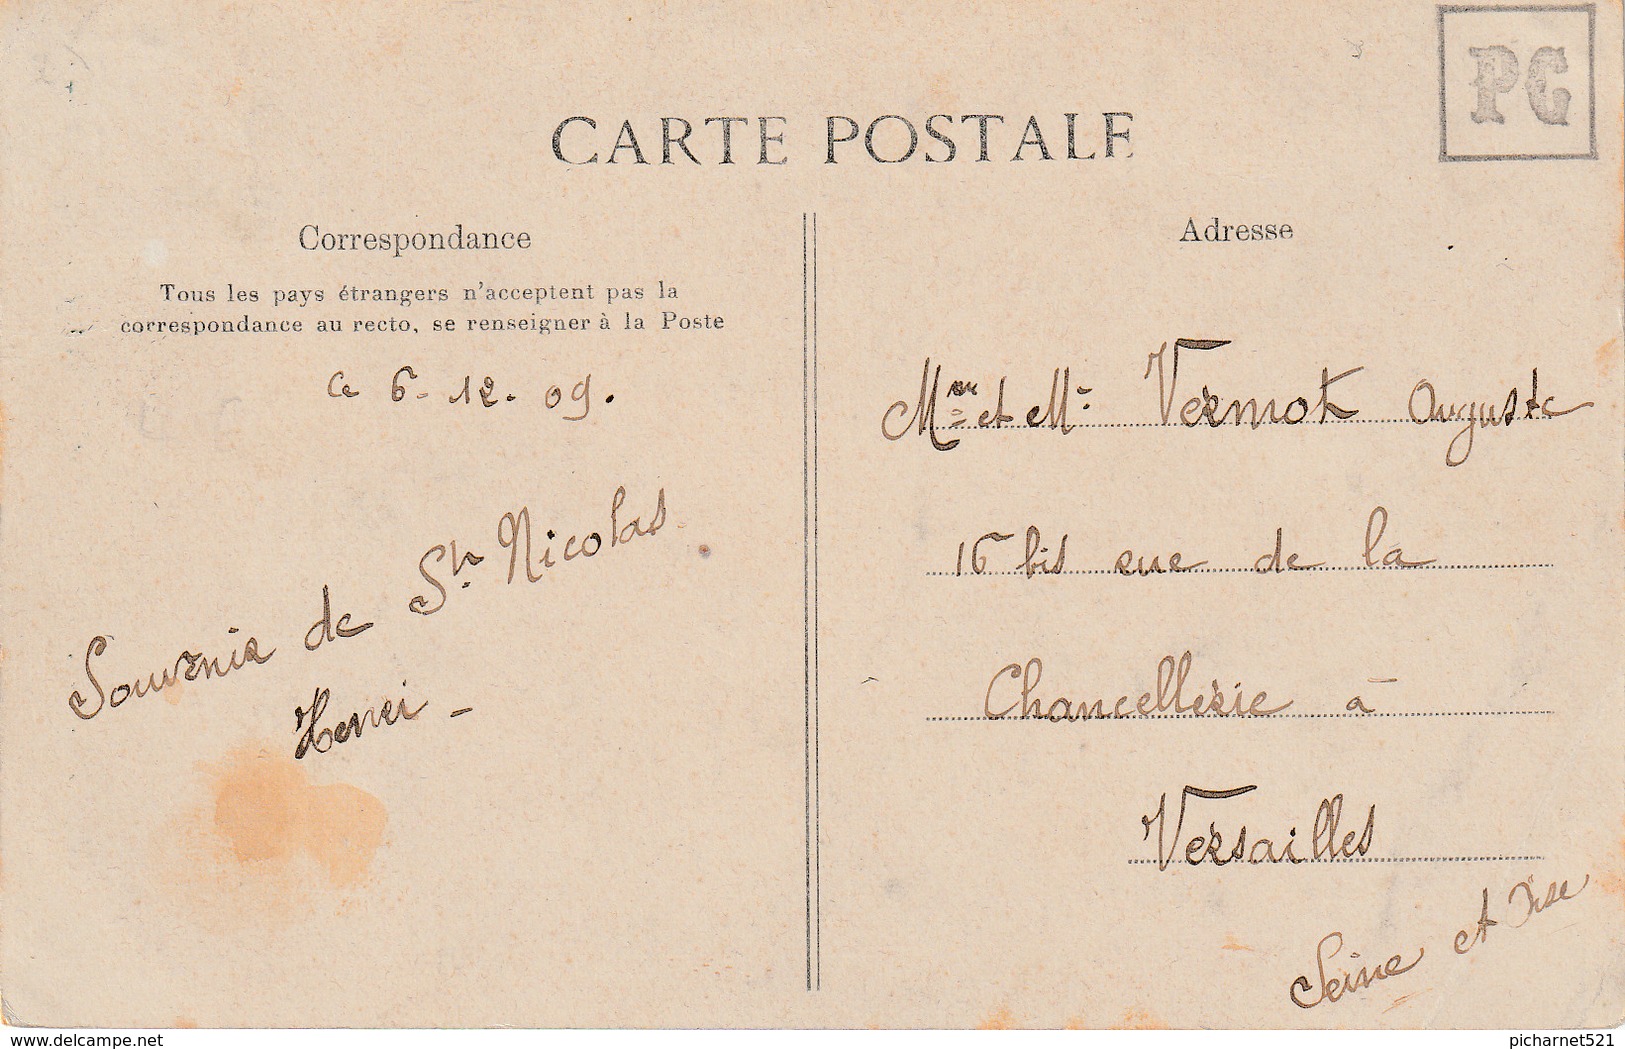 PG
CARTE POSTALE
Correspondance
Tous les pays étrangers n'acceptent pas la
correspondance au recto, se renseigner à la Poste
ce 6-12.09.
Souvenir de St. Nicolas
Henri -
Adresse
Mme et Mr Vermot Auguste
16 bis rue de la
Chancellerie à
Versailles
Seine et Oise
delcampe.net
picharnet521